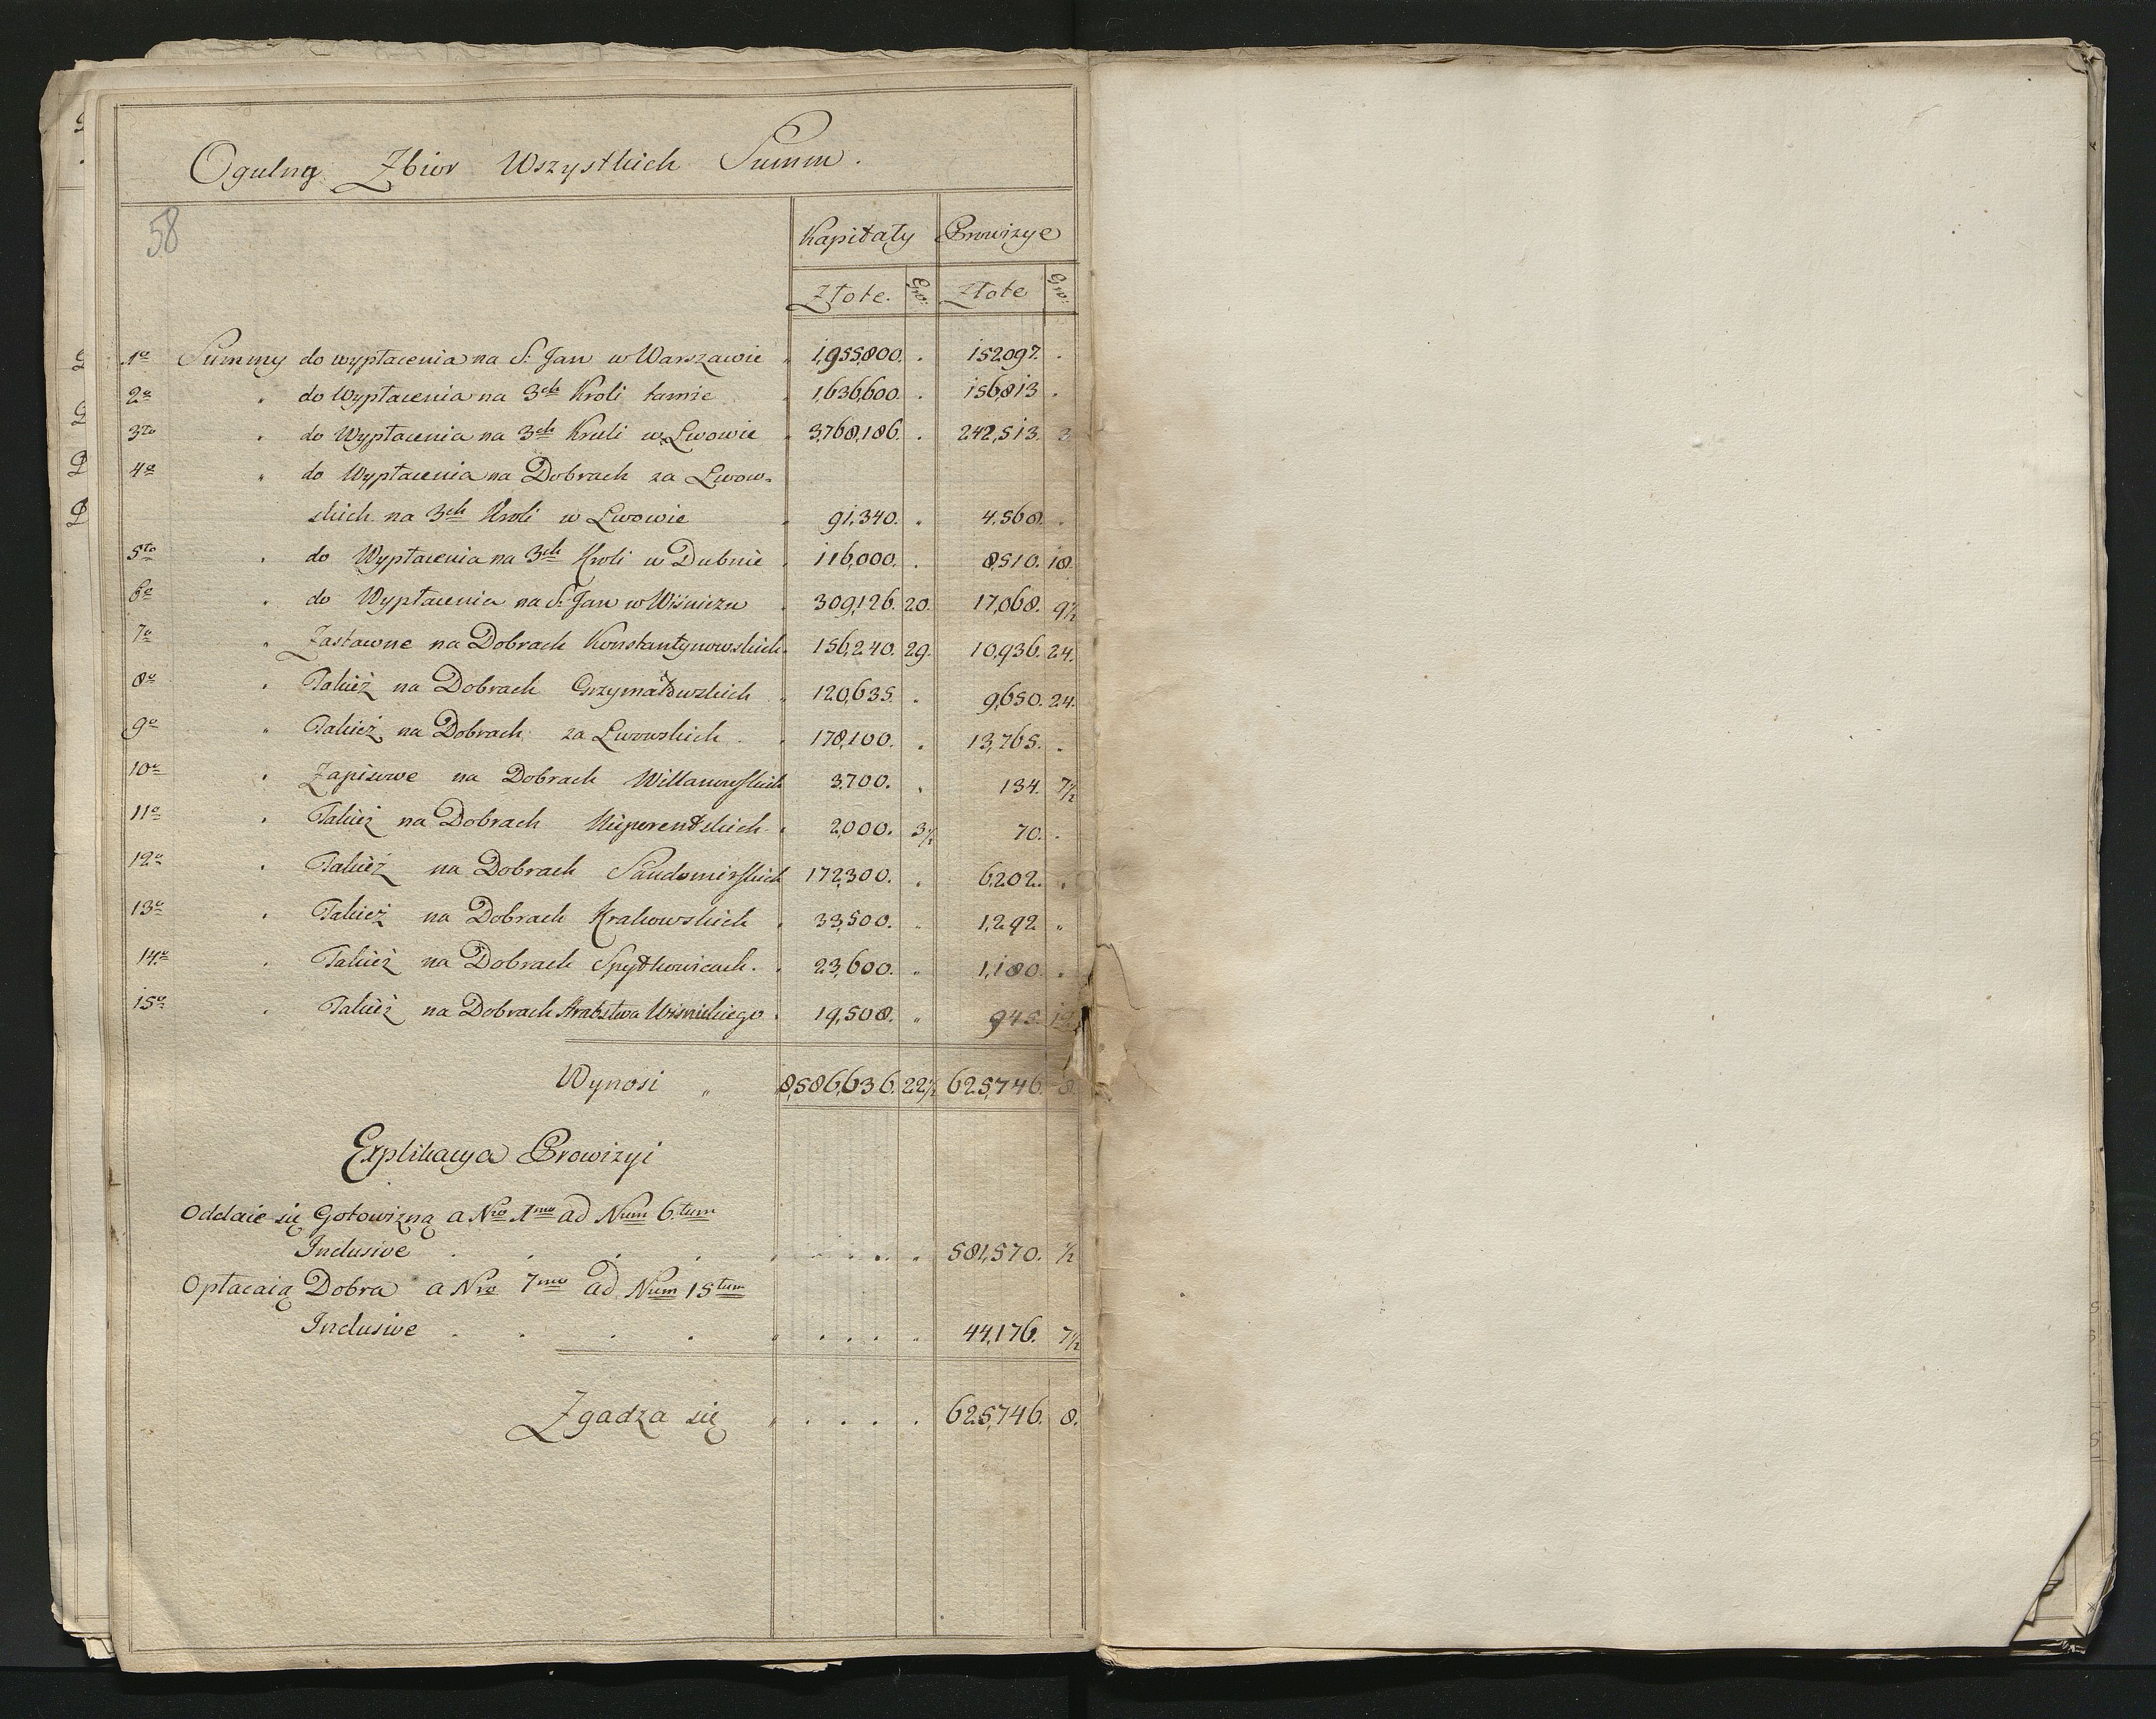 Ogulny Zbior Wszystkich Summ.
58
Kapitały Prowizye
Złote. Gro: Złote Gro:
1o Summy do wypłacenia na S: Jan w Warszawie " 1,955,800. . 152097. .
2o " do Wypłacenia na 3ch Kroli tamże " 1,636,600. . 156,813 .
3tio " do Wypłacenia na 3ch Kruli w Lwowie " 3,768,186. . 242,513. 3
4o " do Wypłacenia na Dobrach za Lwow=
skich na 3ch Kroli w Lwowie " 91,340. " 4,568. .
5to " do Wypłacenia na 3ch Kroli w Dubnie " 116,000. . 8,510. 18.
6o " do Wypłacenia na S: Jan w Wiśniczu " 309,126. 20. 17,068. 9½
7o " Zastawne na Dobrach Konstantynowskich " 156,240. 29. 10,936. 24.
8o " Takież na Dobrach Grzymałowskich " 120,635. . 9,650. 24.
9o " Takież na Dobrach za Lwowskich . " 178,100. " 13,765. .
10o " Zapisowe na Dobrach Willanowskich 3,700. " 134. 7½
11o " Takież na Dobrach Nieporentskich " 2,000. 3½ 70. .
12o " Takież na Dobrach Sandomirskich 172,300. " 6,202. "
13o " Takież na Dobrach Krakowskich " 33,500. " 1,292 "
14o " Takież na Dobrach Spytkowicach . " 23,600. " 1,180. "
15o " Takież na Dobrach Hrabstwa Wisnickiego " 19,508. " 945.
Wynosi " 8,586,636. 22½ 625,746. 8.
Explikacya Prowizyi
Oddaie się Gotowizną a Nro 1mo ad Num 6.tum
Inclusive . . . . " . . . . " 581,570. ½
Opłacaią Dobra a Nro 7mo ad Num 15tum
Inclusive . . . . " . . . " 44,176. 7½
Zgadza się " . . . . 625,746. 8.